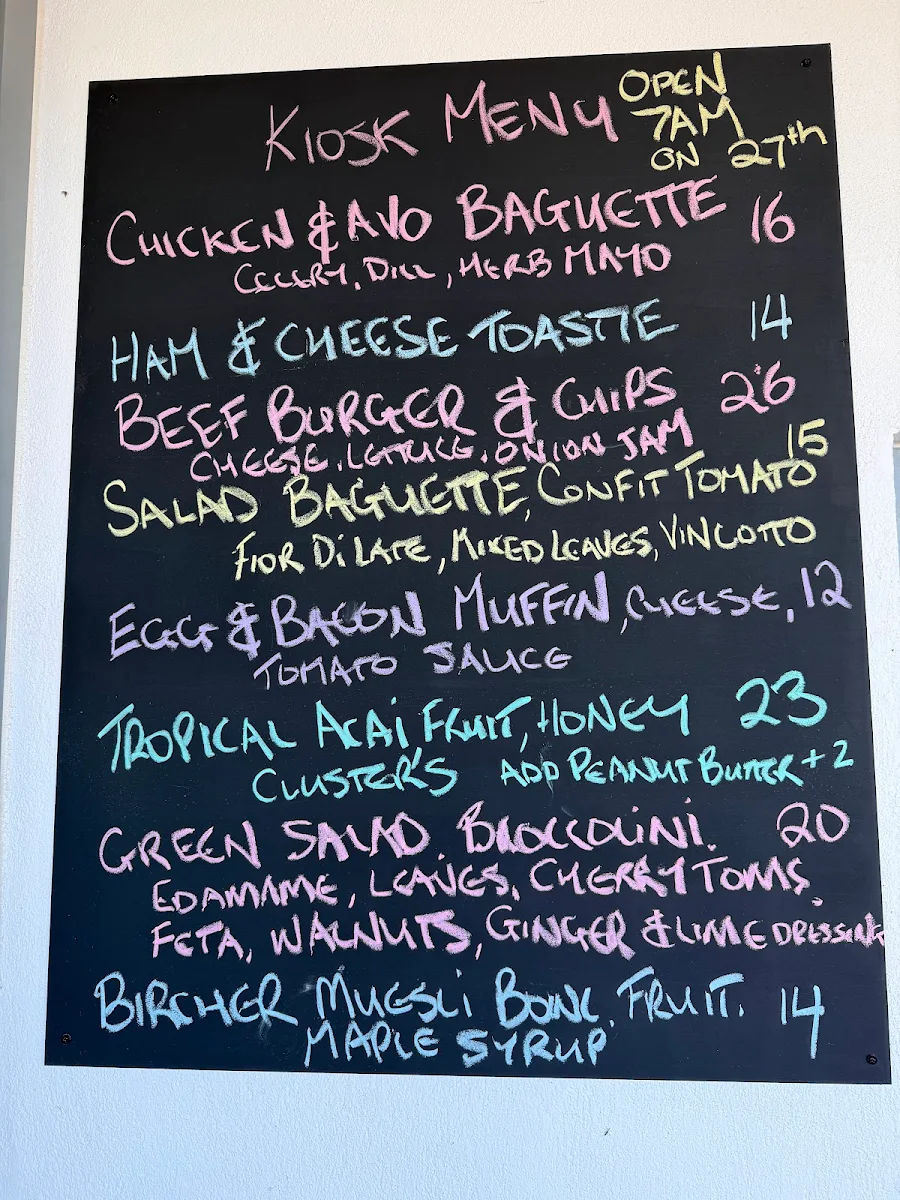 KIOSK MENU
OPEN
7AM
ON 27th
CHICKEN & AVO BAGUETTE 16
CELERY, DILL, HERB MAYO
HAM & CHEESE TOASTIE 14
BEEF BURGER & CHIPS 26
CHEESE, LETTUCE, ONION JAM
SALAD BAGUETTE, CONFIT TOMATO 15
FIOR Di LATE, MIXED LEAVES, VINCOTTO
EGG & BACON MUFFIN, CHEESE, 12
TOMATO SAUCE
TROPICAL ACAi FRUIT, HONEY 23
CLUSTER'S ADD PEANUT BUTTER +2
GREEN SALAD, BROCCOLiNi, 20
EDAMAME, LEAVES, CHERRY TOMS,
FETA, WALNUTS, GINGER & LIME DRESSING
BIRCHER MUESLi BOWL, FRUIT, 14
MAPLE SYRUP